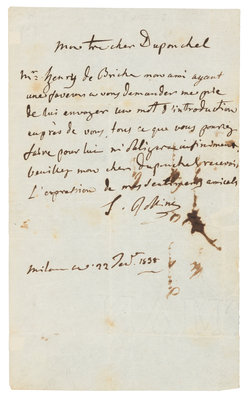 Mon tres cher Duponchel
Mr. Henry de Briche mon ami ayant
une faveur a vous demander me prie
de lui envoyer un mot d'introduction
auprès de vous, tous ce que vous pourrez
faire pour lui m'obligera infiniment
veuillez mon cher Duponchel recevoir
l'expression de mes sentiments amicals
Milan ce 22 1838